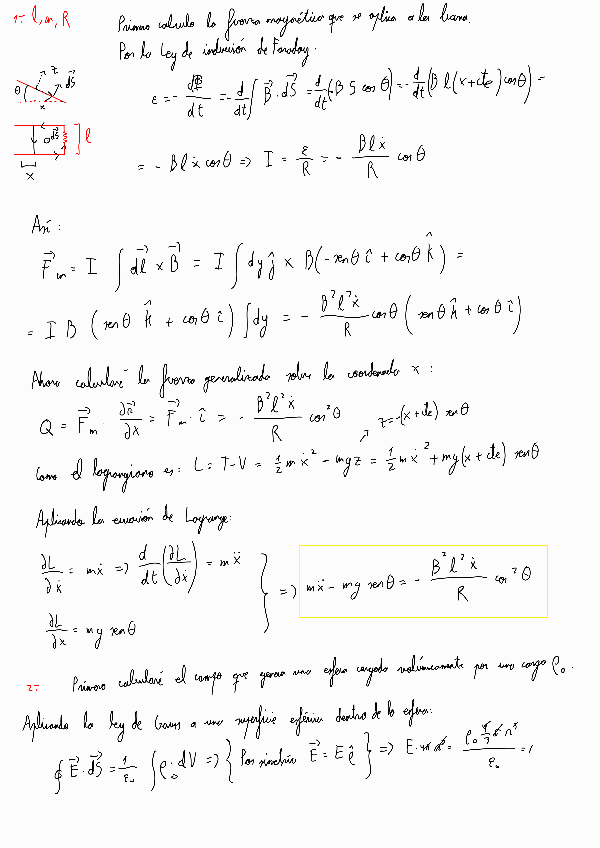 1- l, m, R
Primero calculo la fuerza magnética que se aplica a la barra.
Por la Ley de inducción de Faraday.
θ z dS x
ε = - dΦ/dt = - d/dt ∫ B⃗·dS⃗ = d/dt (-B S cos θ) = - d/dt (B l (x+cte) cos θ) =
dS l
x
= - B l ẋ cos θ => I = ε/R = - B l ẋ/R cos θ
Así:
F⃗m = I ∫ dl⃗ x B⃗ = I ∫ dy ĵ x B(-sen θ î + cos θ k̂) =
= I B (sen θ k̂ + cos θ î) ∫ dy = - B² l² ẋ/R cos θ (sen θ k̂ + cos θ î)
Ahora calcularé la fuerza generalizada sobre la coordenada x:
Q = F⃗m · ∂r⃗/∂x = F⃗m · î = - B² l² ẋ/R cos² θ
z = -(x+cte) sen θ
Como el lagrangiano es: L = T-V = 1/2 m ẋ² - mgz = 1/2 m ẋ² + mg(x + cte) sen θ
Aplicando la ecuación de Lagrange:
∂L/∂ẋ = mẋ => d/dt (∂L/∂ẋ) = mẍ
=> mẍ - mg sen θ = - B² l² ẋ/R cos² θ
∂L/∂x = mg sen θ
2- Primero calcularé el campo que genera una esfera cargada volúmicamente por una carga ρ₀.
Aplicando la ley de Gauss a una superficie esférica dentro de la esfera:
∮ E⃗·dS⃗ = 1/ε₀ ∫ ρ₀·dV => { Por simetría E⃗ = E ρ̂ } => E · 4π r² = ρ₀ 4/3 π r³/ε₀ =>